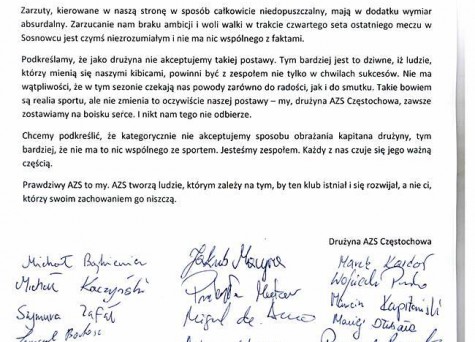 Zarzuty, kierowane w naszą stronę w sposób całkowicie niedopuszczalny, mają w dodatku wymiar
absurdalny. Zarzucanie nam braku ambicji i woli walki w trakcie czwartego seta ostatniego meczu w
Sosnowcu jest czymś niezrozumiałym i nie ma nic wspólnego z faktami.
Podkreślamy, że jako drużyna nie akceptujemy takiej postawy. Tym bardziej jest to dziwne, iż ludzie,
którzy mienią się naszymi kibicami, powinni być z zespołem nie tylko w chwilach sukcesów. Nie ma
wątpliwości, że w tym sezonie czekają nas powody zarówno do radości, jak i do smutku. Takie bowiem
są realia sportu, ale nie zmienia to oczywiście naszej postawy – my, drużyna AZS Częstochowa, zawsze
zostawiamy na boisku serce. I nikt nam tego nie odbierze.
Chcemy podkreślić, że kategorycznie nie akceptujemy sposobu obrażania kapitana drużyny, tym
bardziej, że nie ma to nic wspólnego ze sportem. Jesteśmy zespołem. Każdy z nas czuje się jego ważną
częścią.
Prawdziwy AZS to my. AZS tworzą ludzie, którym zależy na tym, by ten klub istniał i się rozwijał, a nie ci,
którzy swoim zachowaniem go niszczą.
Drużyna AZS Częstochowa
Michał Jakub Marek
Michał Kaczyński Wojciech
Szymura Miguel de Marcin